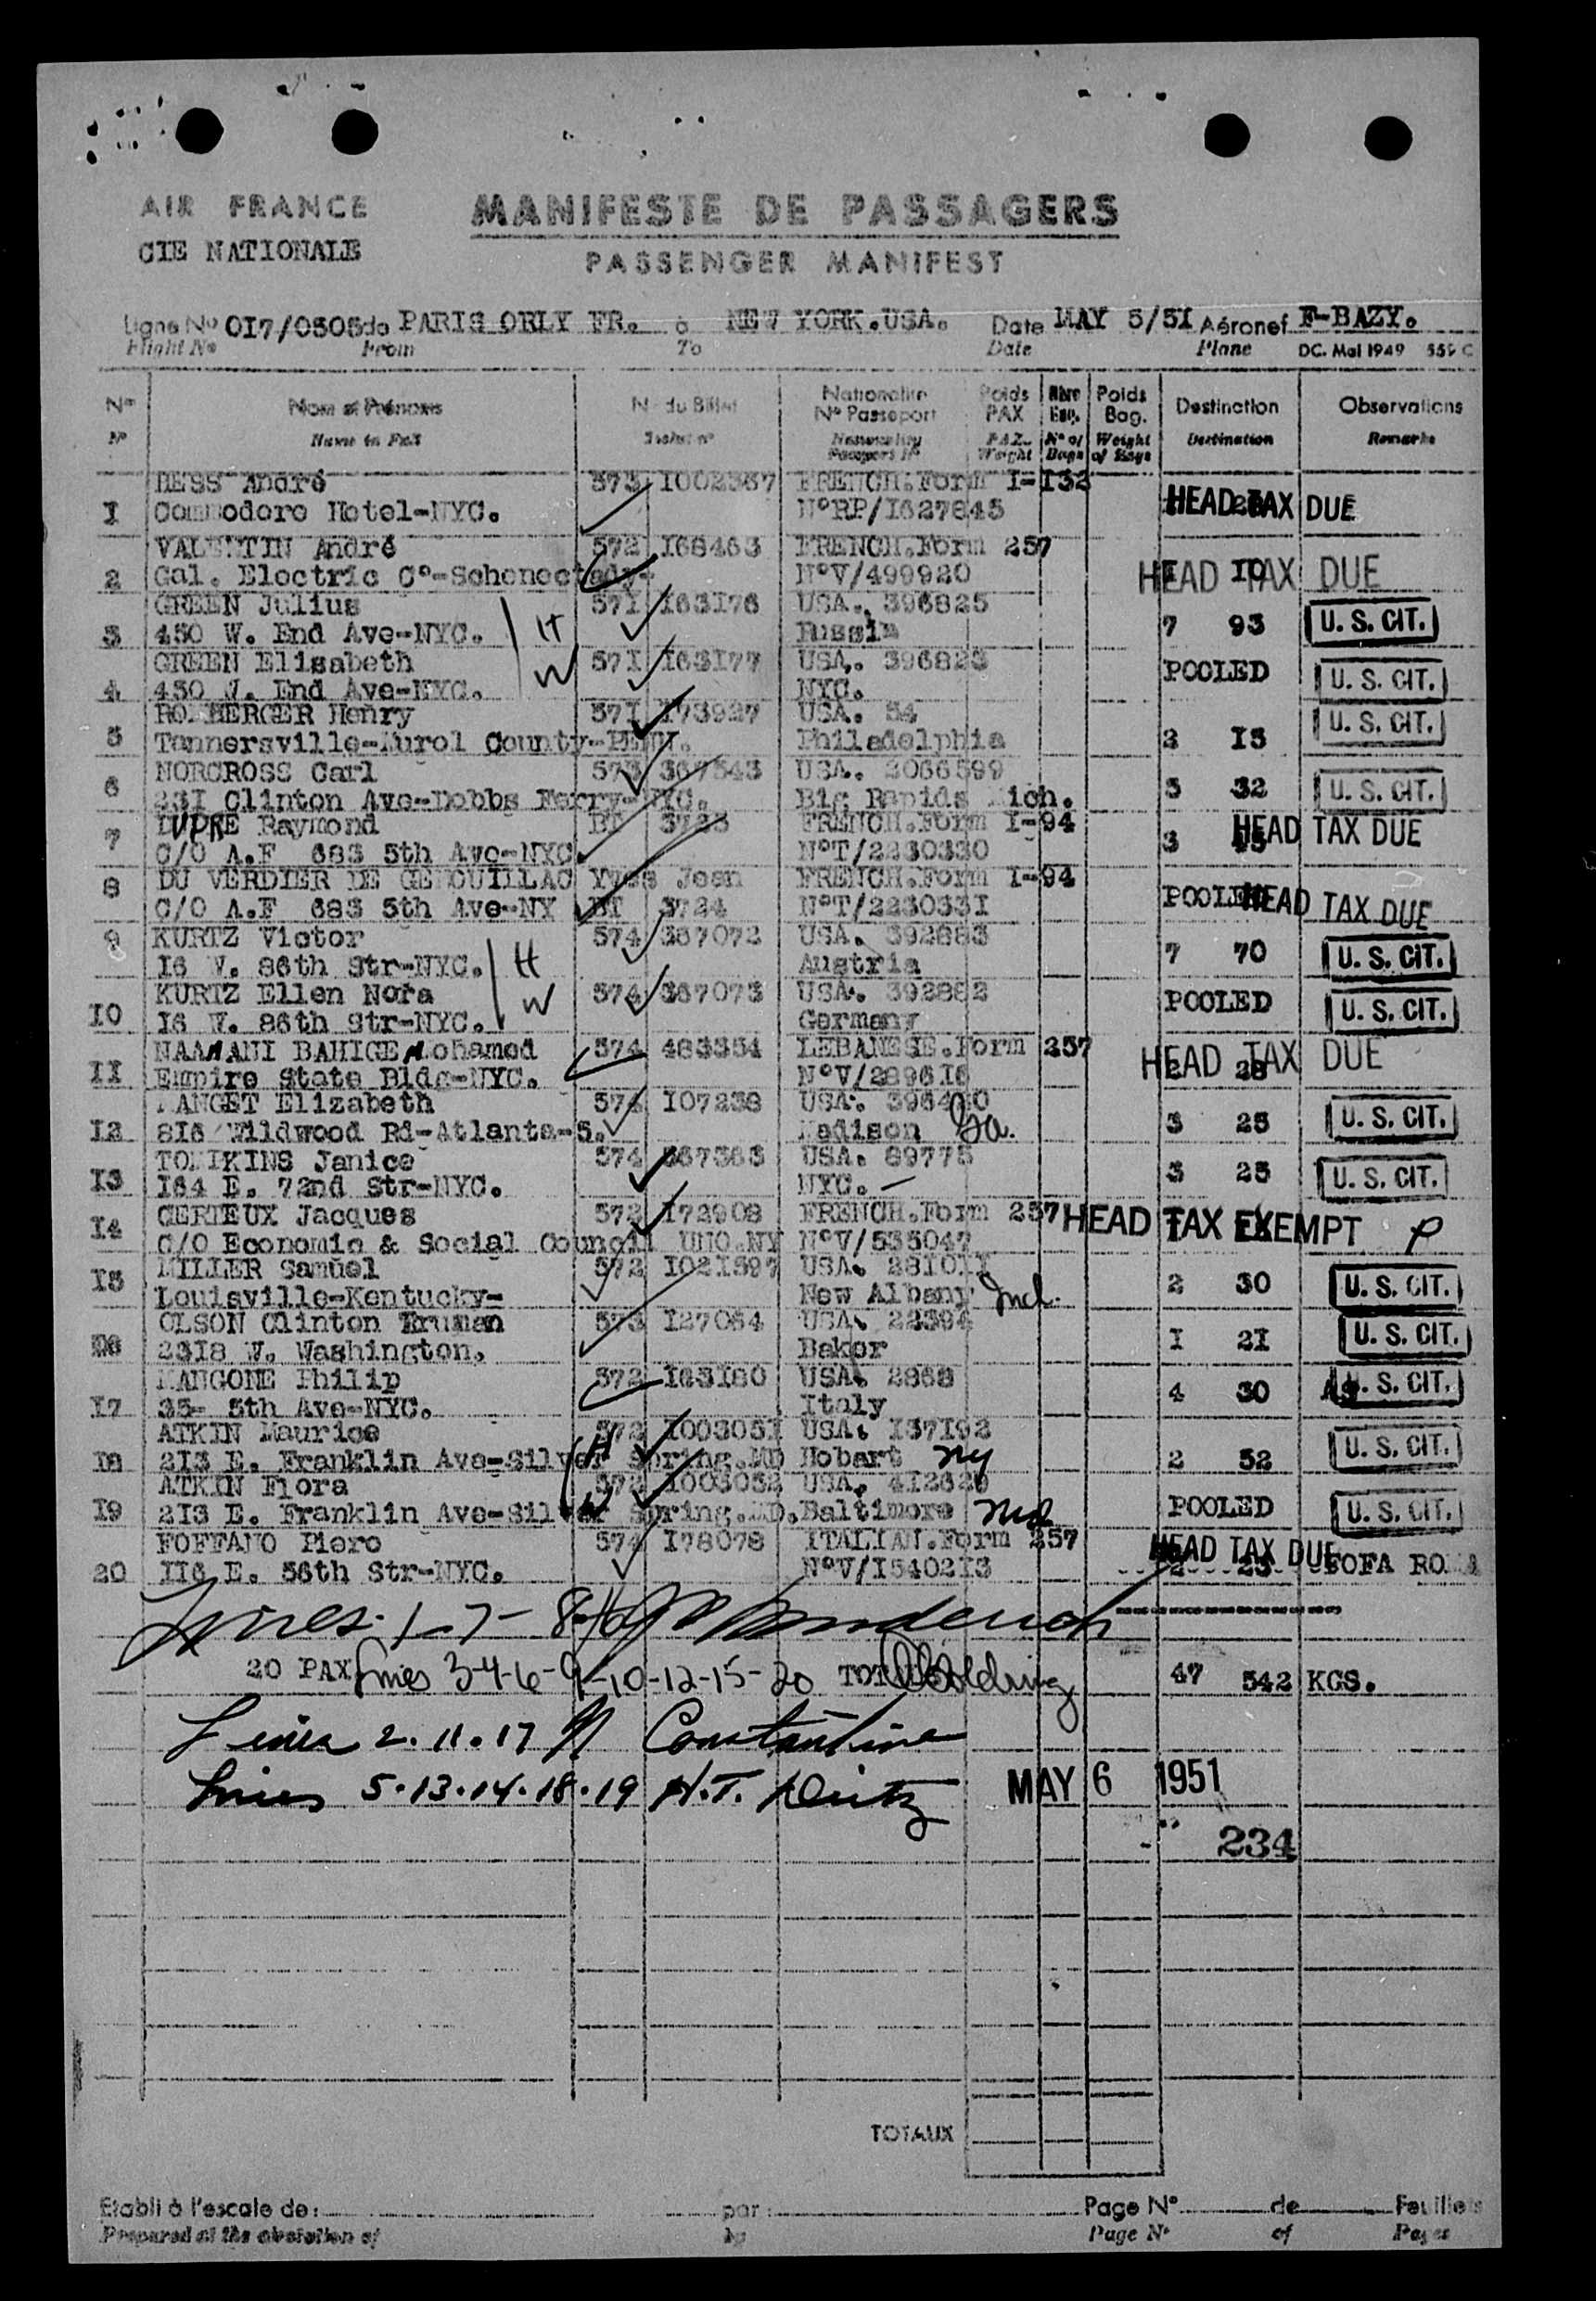 AIR FRANCE
CIE NATIONALE
MANIFESTE DE PASSAGERS
PASSENGER MANIFEST
Ligne No OI7/0505 de PARIS ORLY FR. à NEW YORK.USA. Date MAY 5/5I Aéronef F-BAZY.
Flight No From To Date Plane DC. Mai 1949 559 C
No Nom et Prénoms No du Billet Nationalité No Passeport Poids PAX Nbre Esq. Poids Bag. Destination Observations
No Name in Full Ticket no Nationality Passport No PAX. Weight No of Bags Weight of Bags Destination Remarks
HESS André 573 I002367 FRENCH.Form I-I32
I Commodore Hotel-NYC. N°RP/I627845 HEAD TAX DUE
VALENTIN André 572 I68463 FRENCH.Form 257
2 Gal. Electric C°-Schenectady- N°V/499920 I IO HEAD TAX DUE
GREEN Julius 57I I63I76 USA. 396825
3 450 W. End Ave-NYC. H Russia 7 93 U. S. CIT.
GREEN Elisabeth 57I I63I77 USA. 396823
4 450 W. End Ave-NYC. W NYC. POOLED U. S. CIT.
Henry 57I I73927 USA. 54
5 Tannersville- County-PENN. Philadelphia 2 I5 U. S. CIT.
NORCROSS Carl 573 367543 USA. 2066599
6 23I Clinton Ave-Dobbs Ferry-NYC. Big Rapids Mich. 3 32 U. S. CIT.
DUPRE Raymond BT 3723 FRENCH.Form I-94
7 C/O A.F 683 5th Ave-NYC. N°T/2230330 3 HEAD TAX DUE
8 DU VERDIER DE GENOUILLAC Yves Jean FRENCH.Form I-94
C/O A.F 683 5th Ave-NY BT 3724 N°T/223033I POOLED HEAD TAX DUE
9 KURTZ Victor 574 367072 USA. 392883
I6 W. 86th Str-NYC. H Austria 7 70 U. S. CIT.
KURTZ Ellen Nora 574 367073 USA. 392882
IO I6 W. 86th Str-NYC. W Germany POOLED U. S. CIT.
NAAMANI BAHIGE Mohamed 574 483354 LEBANESE.Form 257
II Empire State Bldg-NYC. N°V/2896I6 2 28 HEAD TAX DUE
MANGET Elizabeth 574 I07238 USA.
I2 8I6 Wildwood Rd-Atlanta-5. Madison Ga. 3 25 U. S. CIT.
TOMPKINS Janice 574 367363 USA. 89775
I3 I64 E. 72nd Str-NYC. NYC. - 3 25 U. S. CIT.
I4 Jacques 572 I72908 FRENCH.Form 257 HEAD TAX EXEMPT P
C/O Economic & Social Council UNO.NY N°V/535047
I5 MILLER Samuel 572 I02I597 USA.
Louisville-Kentucky- New Albany Ind. 2 30 U. S. CIT.
OLSON Clinton Truman 573 I27064 USA. 22394
I6 23I8 W. Washington. Baker I 2I U. S. CIT.
MANGONE Philip 572 I63I80 USA. 2868
I7 35- 5th Ave-NYC. Italy 4 30 U. S. CIT.
ATKIN Maurice 572 I00305I USA. I37I92
I8 2I3 E. Franklin Ave-Silver Spring.MD H Hobart NY 2 52 U. S. CIT.
ATKIN Flora 572 I003052 USA.
I9 2I3 E. Franklin Ave-Silver Spring.MD. W Baltimore Md POOLED U. S. CIT.
FOFFANO Piero 574 I78078 ITALIAN.Form 257
20 II6 E. 56th Str-NYC. N°V/I5402I3 2 25 HEAD TAX DUE FOFA ROMA
Lines 1-7-8-16
20 PAX Lines 3-4-6-9-10-12-15-20 TOTAL 47 542 KGS.
Lines 2.11.17 Constantine
Lines 5.13.14.18.19 H.T.
MAY 6 1951
234
TOTAUX
Etabli à l'escale de: par: Page No de Feuillets
Prepared at the station of by Page No of Pages